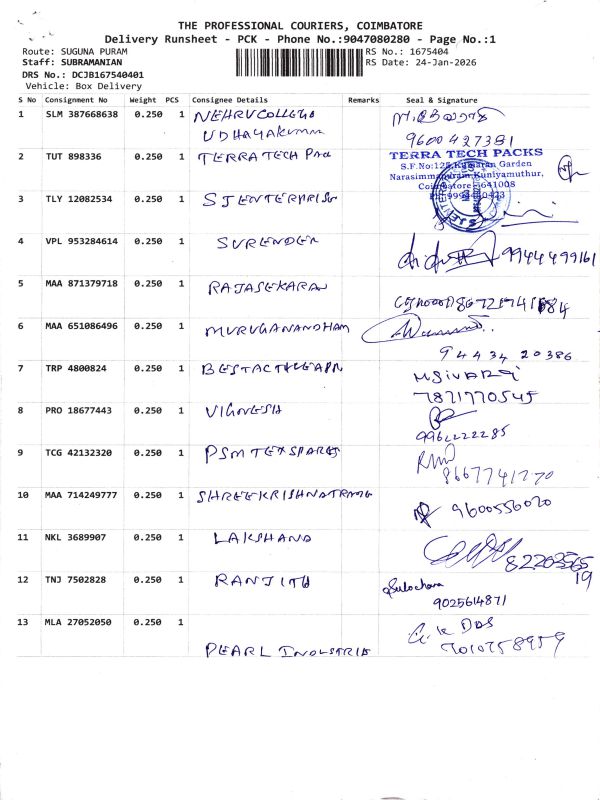 THE PROFESSIONAL COURIERS, COIMBATORE
Delivery Runsheet - PCK - Phone No.:9047080280 - Page No.:1
Route: SUGUNA PURAM RS No.: 1675404
Staff: SUBRAMANIAN RS Date: 24-Jan-2026
DRS No.: DCJB167540401
Vehicle: Box Delivery
S No Consignment No Weight PCS Consignee Details Remarks Seal & Signature
1 SLM 387668638 0.250 1 NEHRU COLLEGE
UDHAYAKUMAR 9600427381
2 TUT 898336 0.250 1 TERRA TECH PAC TERRA TECH PACKS
Garden
Kuniyamuthur,
Coimbatore-641008
3 TLY 12082534 0.250 1 SJ ENTERPRISE
4 VPL 953284614 0.250 1 SURENDER 9944499161
5 MAA 871379718 0.250 1 RAJASEKARAN
6 MAA 651086496 0.250 1 MURUGANANDHAM
94434 20386
7 TRP 4800824 0.250 1
7871770545
8 PRO 18677443 0.250 1 VIGNESH
9962222285
9 TCG 42132320 0.250 1 PSM TEX SPARES
8667741770
10 MAA 714249777 0.250 1 9600556020
11 NKL 3689907 0.250 1 LAKSHANA
12 TNJ 7502828 0.250 1 RANJITH Sulochana
9025614871
13 MLA 27052050 0.250 1 G.K DAS
PEARL INDUSTRIE 7010758959